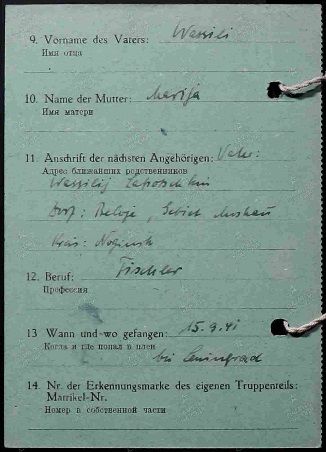 9. Vorname des Vaters: Wassili
Имя отца
10. Name der Mutter: Marija
Имя матери
11. Anschrift der nächsten Angehörigen: Vater:
Адрес ближайших родственников
Wassilij
Dorf: Beloje, Gebiet Moskau
Kreis: Noginsk
12. Beruf: Tischler
Профессия
13 Wann und wo gefangen: 15.9.41
Когда и где попал в плен
bei Leningrad
14. Nr. der Erkennungsmarke des eigenen Truppenteils:
Matrikel-Nr.
Номер в собственной части